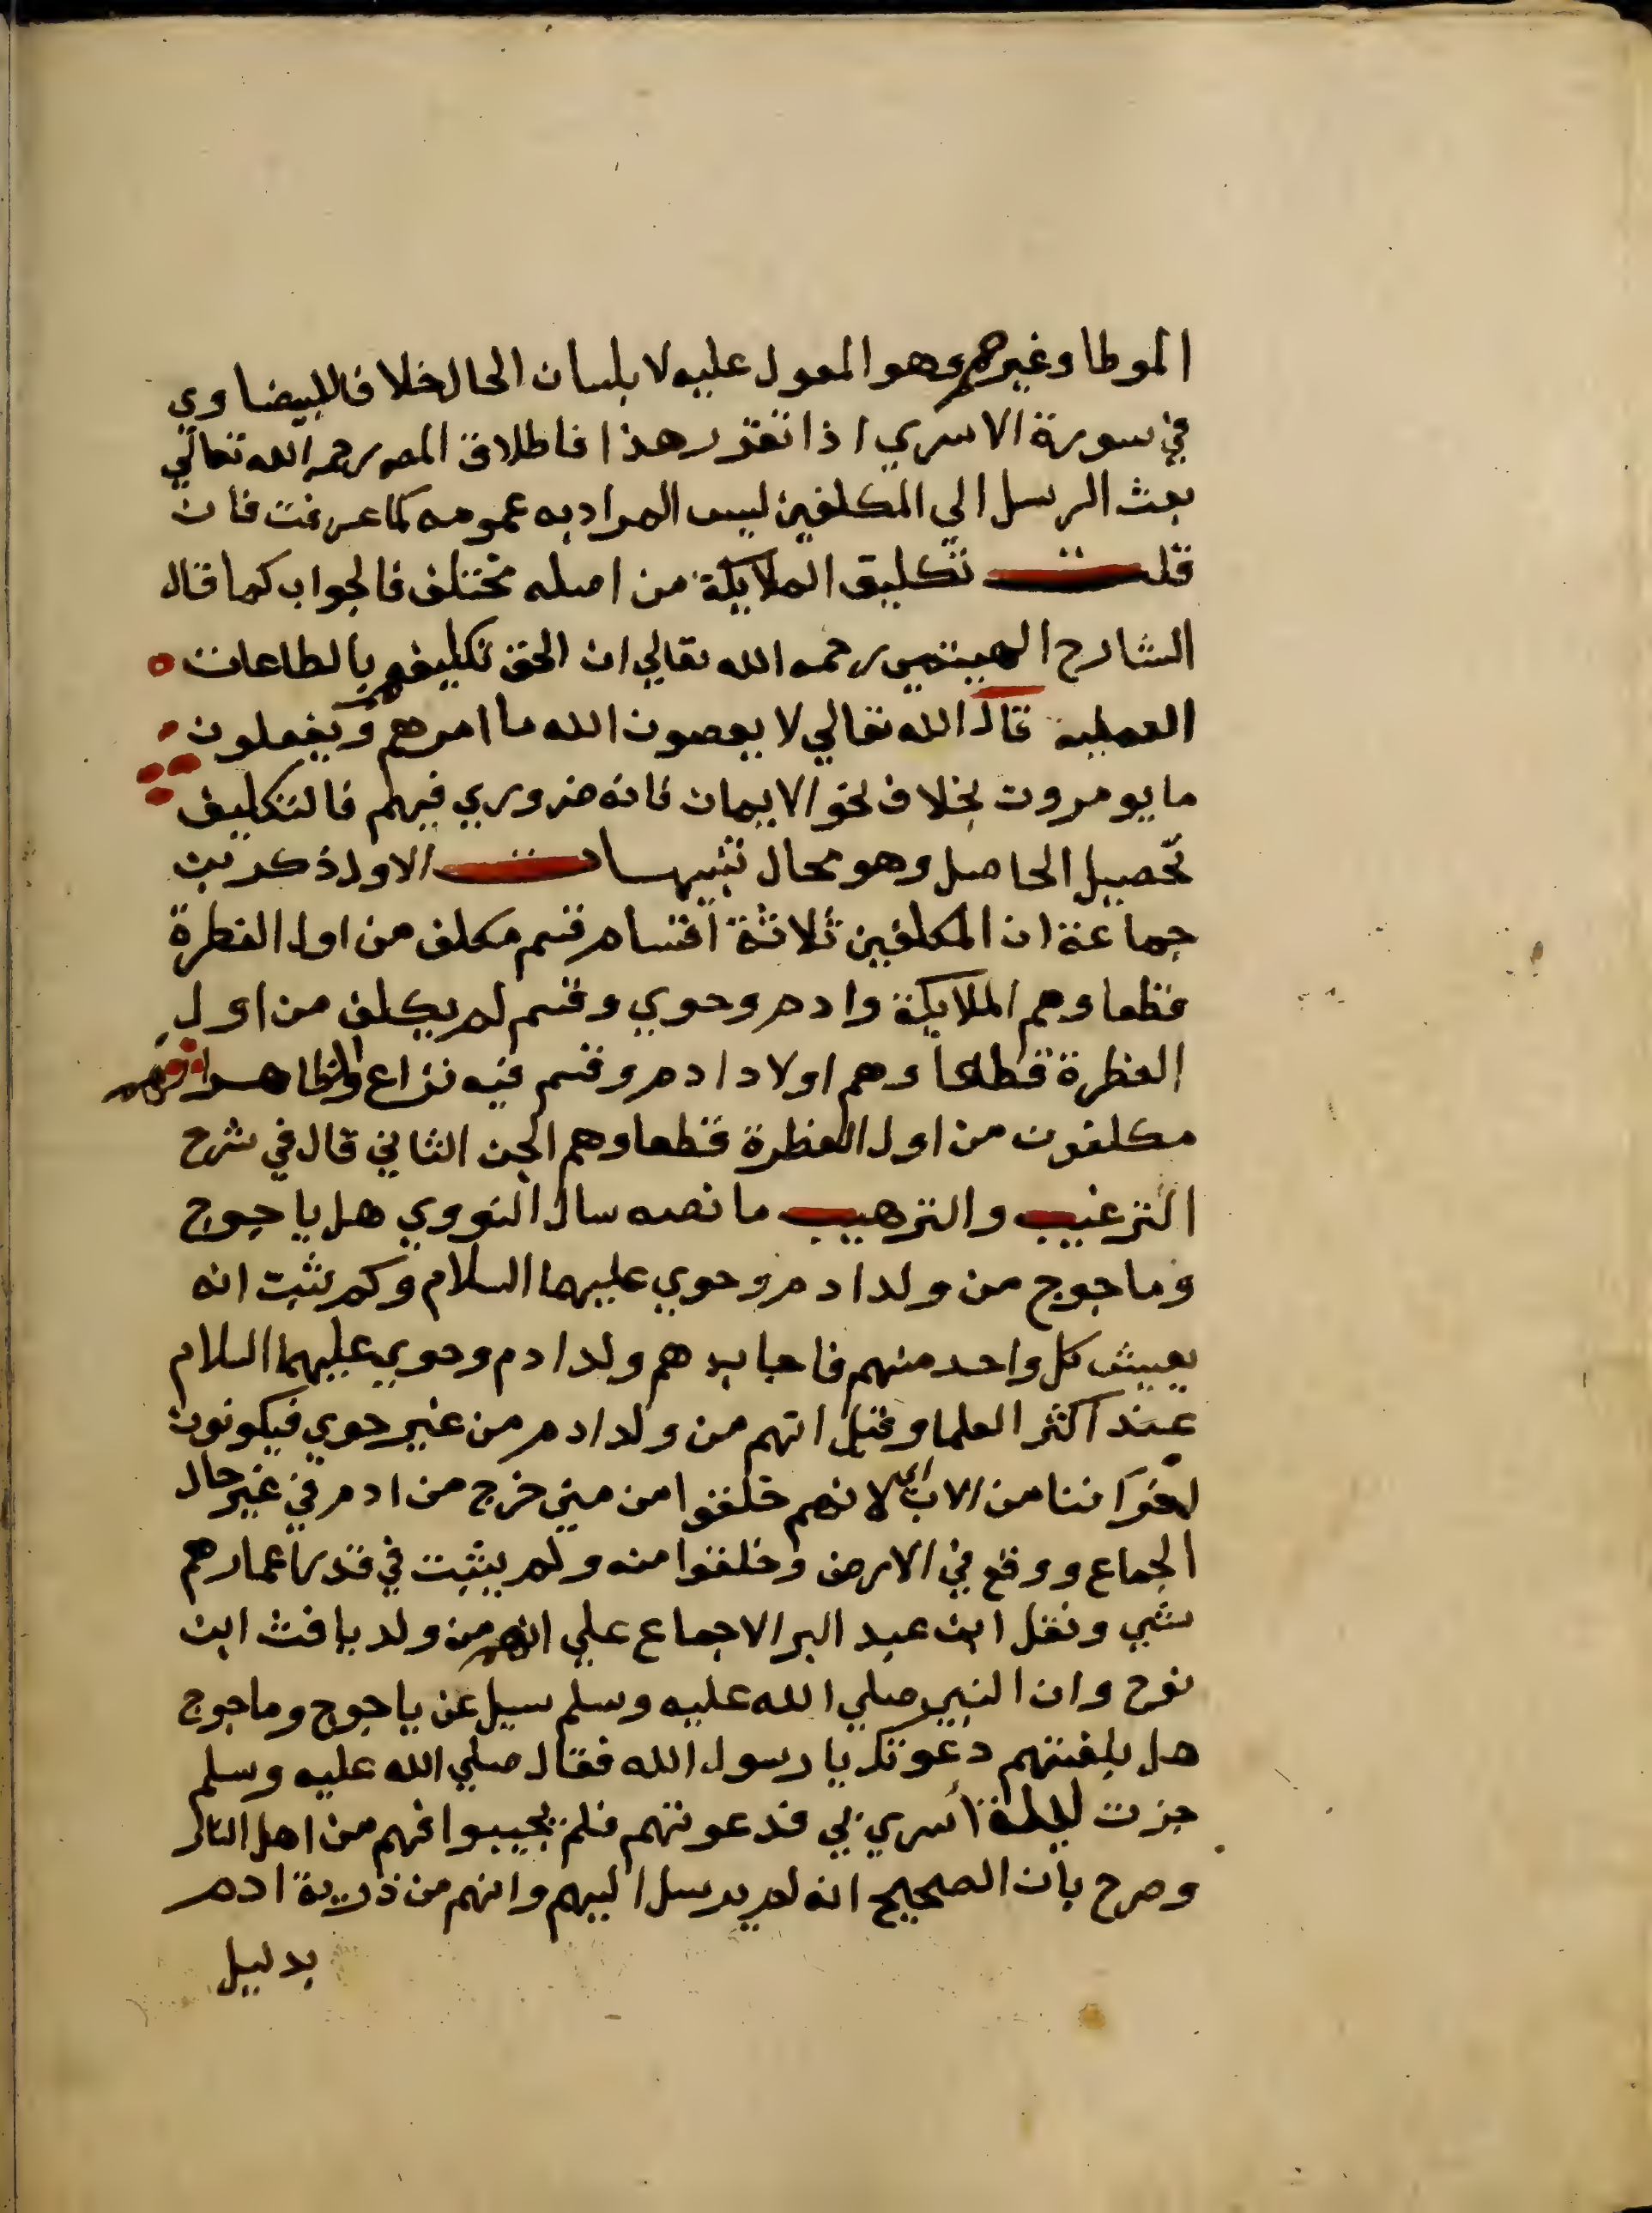 الموطا وغيرهم وهو المعول عليه لا بلسان الحال خلافا للبيضاوي
في سورة الاسري اذا تقرر هذا فاطلاق المص رحمه الله تعالي
بعث الرسل الي المكلفين ليس المراد به عمومه كما عرفت فان
قلت تكليف الملايكة من اصله مختلف فالجواب كما قال
الشارح الهيتمي رحمه الله تعالي ان الحق تكليفهم بالطاعات
العملية قال الله تعالي لا يعصون الله ما امرهم ويفعلون
ما يومرون بخلاف نحو الايمان فانه ضروري فيهم فالتكليف
تحصيل الحاصل وهو محال تنبيهات الاول ذكر بن
جماعة ان المكلفين ثلاثة اقسام قسم مكلف من اول الفطرة
قطعا وهم الملايكة وادم وحوي وقسم لم يكلف من اول
الفطرة قطعا وهم اولاد ادم وقسم فيه نزاع والظاهر انهم
مكلفون من اول الفطرة قطعا وهم الجن الثاني قال في شرح
الترغيب والترهيب ما نصه سال النووي هل ياجوج
وماجوج من ولد ادم وحوي عليهما السلام وكم يثبت انه
يعيش كل واحد منهم فاجاب هم ولد ادم وحوي عليهما السلام
عند اكثر العلما وقيل انهم من ولد ادم من غير حوي فيكونون
اخواننا من الاب اي لانهم خلقوا من مني خرج من ادم في غير حال
الجماع ووقع في الارض وخلقوا منه ولم يثبت في قدر اعمارهم
شي ونقل ابن عبد البر الاجماع علي انهم من ولد يافث ابن
نوح وان النبي صلي الله عليه وسلم سيل عن ياجوج وماجوج
هل بلغتهم دعوتك يا رسول الله فقال صلي الله عليه وسلم
جزت ليلة أسري بي فدعوتهم فلم يجيبوا فهم من اهل النار
وصرح بان الصحيح انه لم يرسل اليهم وانهم من ذرية ادم
بدليل